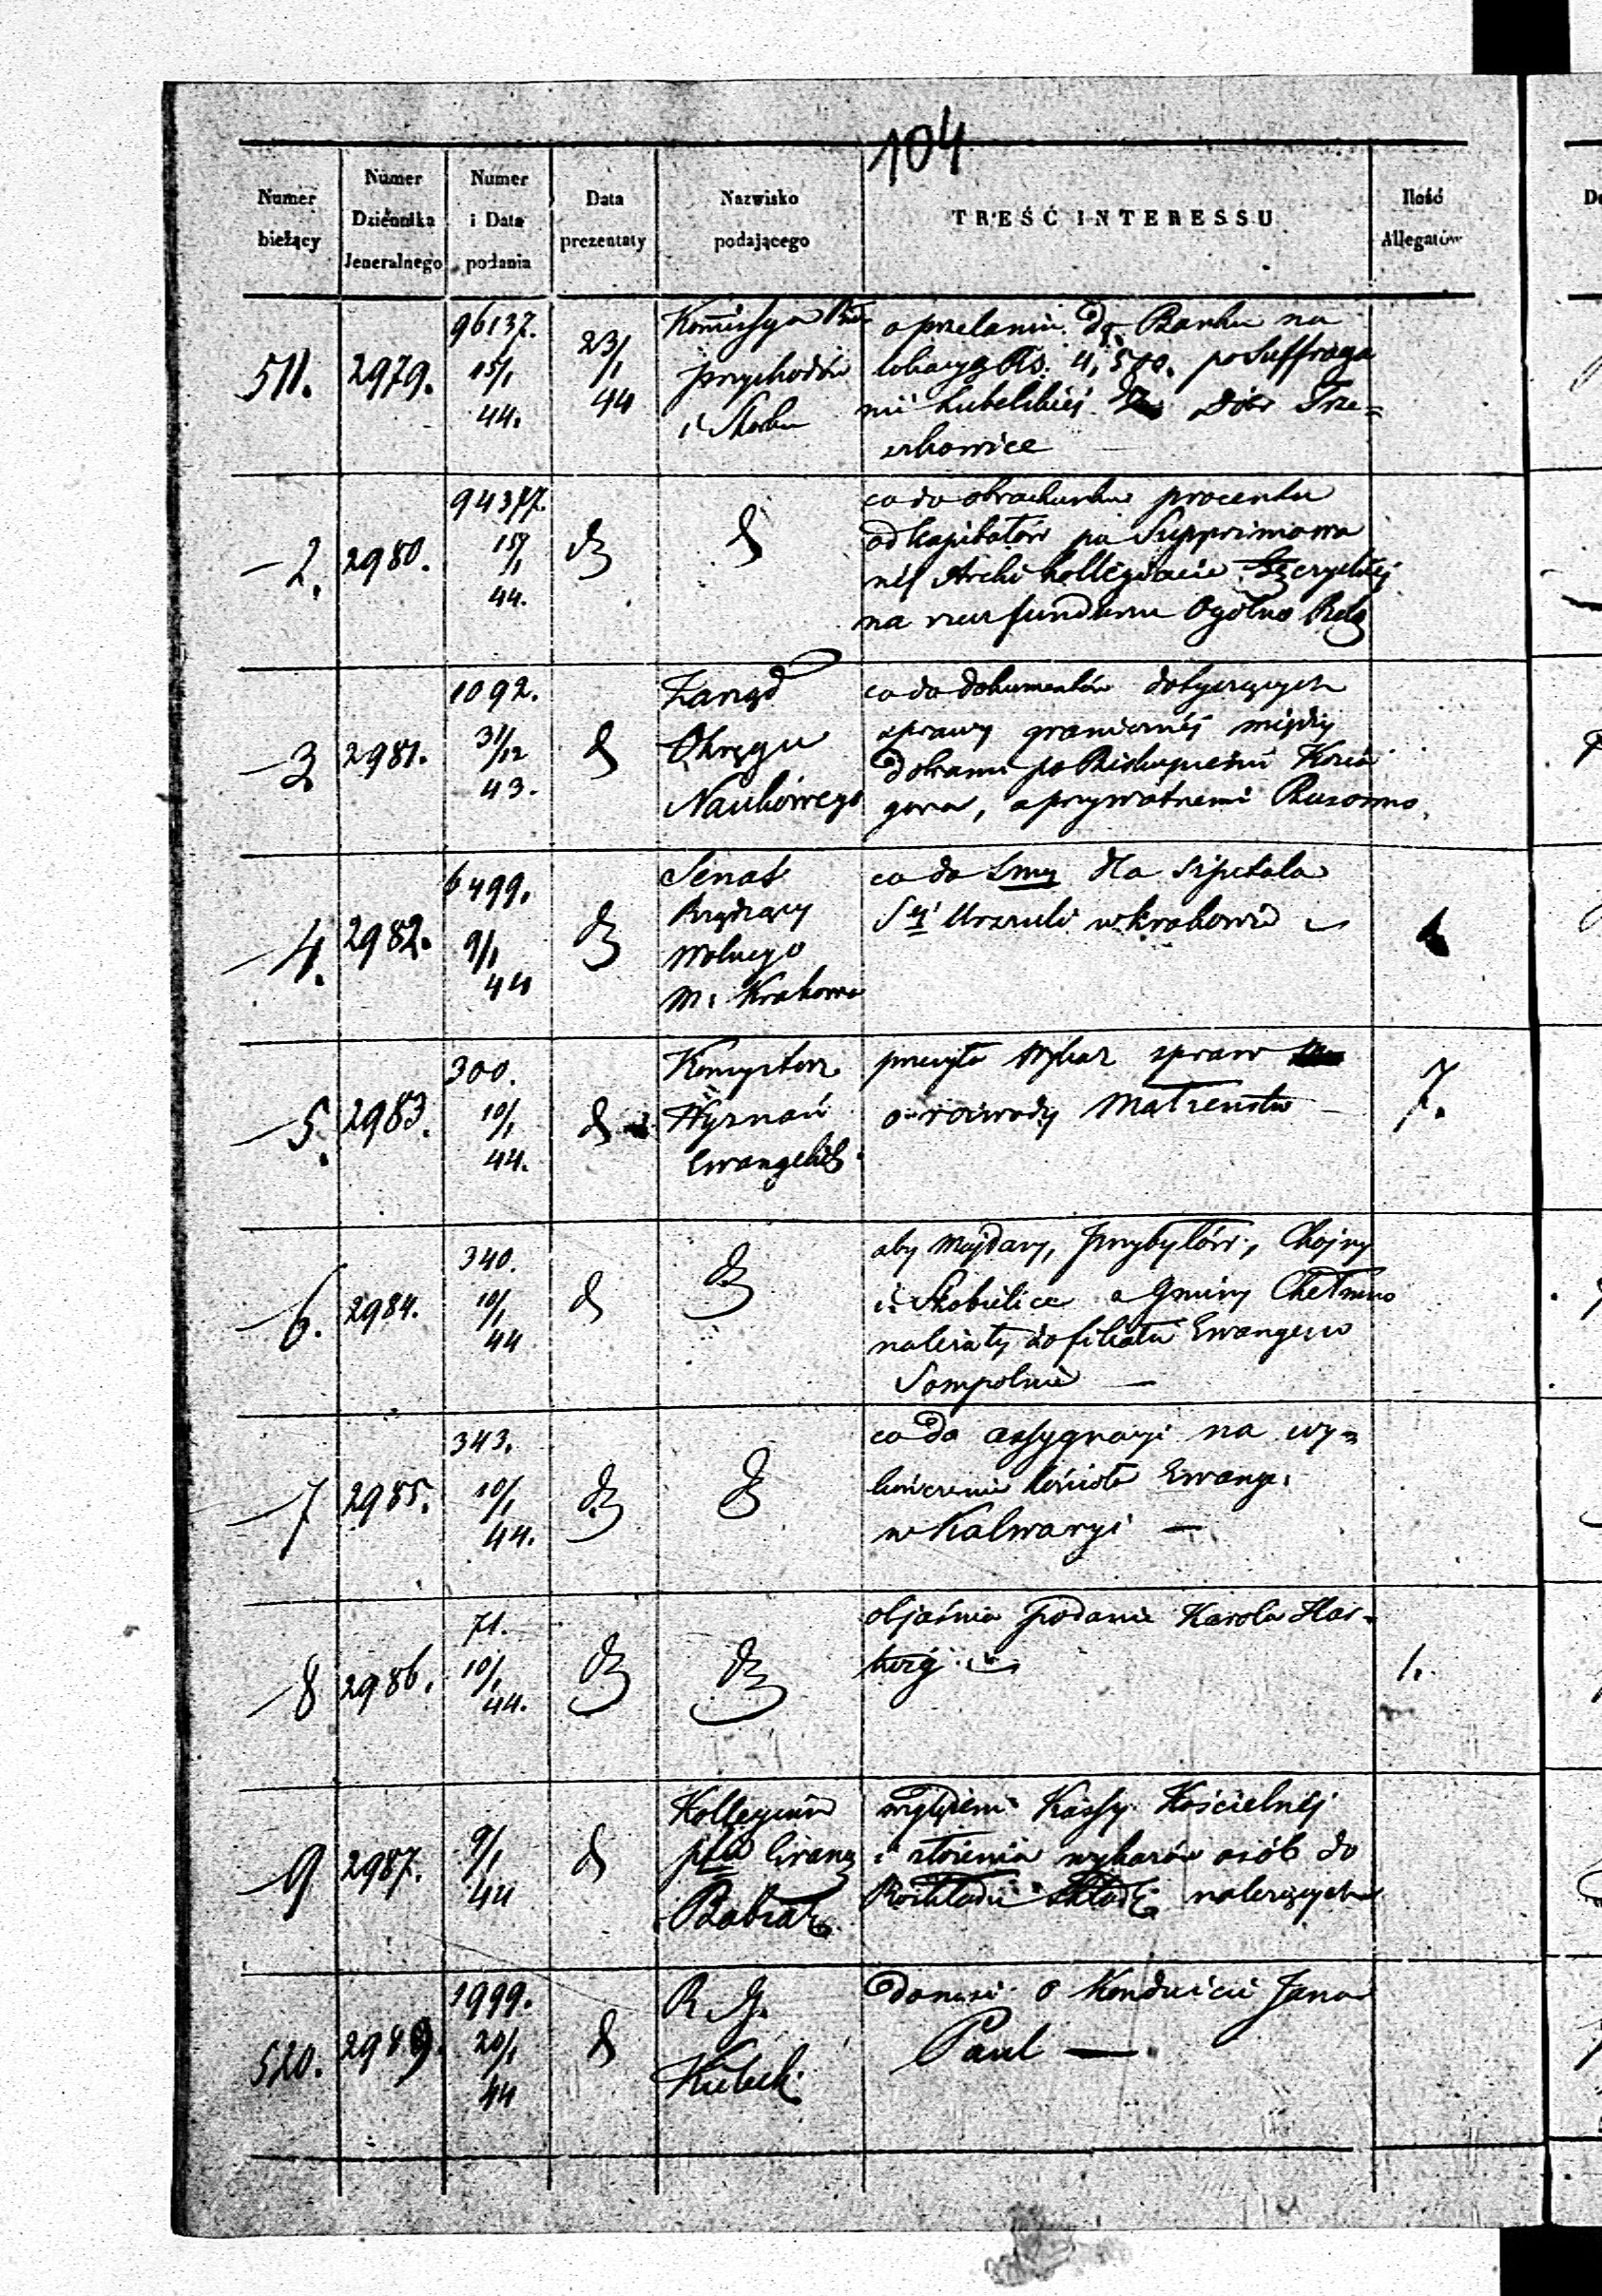 104
Numer bieżący
Numer Dziennika Jeneralnego
Numer i Data podania
Data prezentaty
Nazwisko podającego
TREŚĆ INTERESSU
Ilość Allegatów
511. 2979. 96137. 15/1 44. 23/1 44
Kommissya
Przychodów
i Skarbu
o przelaniu do Banku na
lokacyą Rs: 4,500. po Suffraga
nii Lubelskiej Dóbr Trze=
-2. 2980. 94377. 15/1 44. d
d
co do obrachunku procentu
od kapitałów po Supprimowa
néj Archi Kollegiacie Łęczyckiéj
na rzecz funduszu Ogólno Relg
-3 2981. 1092. 31/12 43. d
Zarząd
Okręgu
Naukowego
co do dokumentów dotyczących
sprawy granicznéj między
dobrami po Biskupiemi
gora, a prywatnemi
-4. 2982. 6499. 9/1 44 d
Senat
Rządzący
Wolnego
M: Krakowa
co do Smy dla szpitala
Sej Urszuli w Krakowie
-5. 2983. 300. 10/1 44. d
Konsystorz
Wyznań
Ewangelick
przesyła Wykaz spraw
o rozwody Małżeństw
7.
-6. 2984. 340. 10/1 44 d
d
aby Majdany, Przybyłów, Chojny
i Skobielice a Gminy Chełmno
należały do filiału Ewange: w
Sompolnie
-7 2985. 343. 10/1 44. d
d
co do assygnacyi na wy=
kończenie kościoła Ewange:
w Kalwaryi
-8 2986. 71. 10/1 44. d
d
objaśnia podanie Karola Har=
1.
-9 2987. 9/1 44 d
Kollegium
względem Kassy Kościelnéj
i złożenia wykazów osób do
Rozkładu składki należących
520. 2989. 1999. 20/1 44 d
R. G.
donosi o Konduicie Jana
Paul